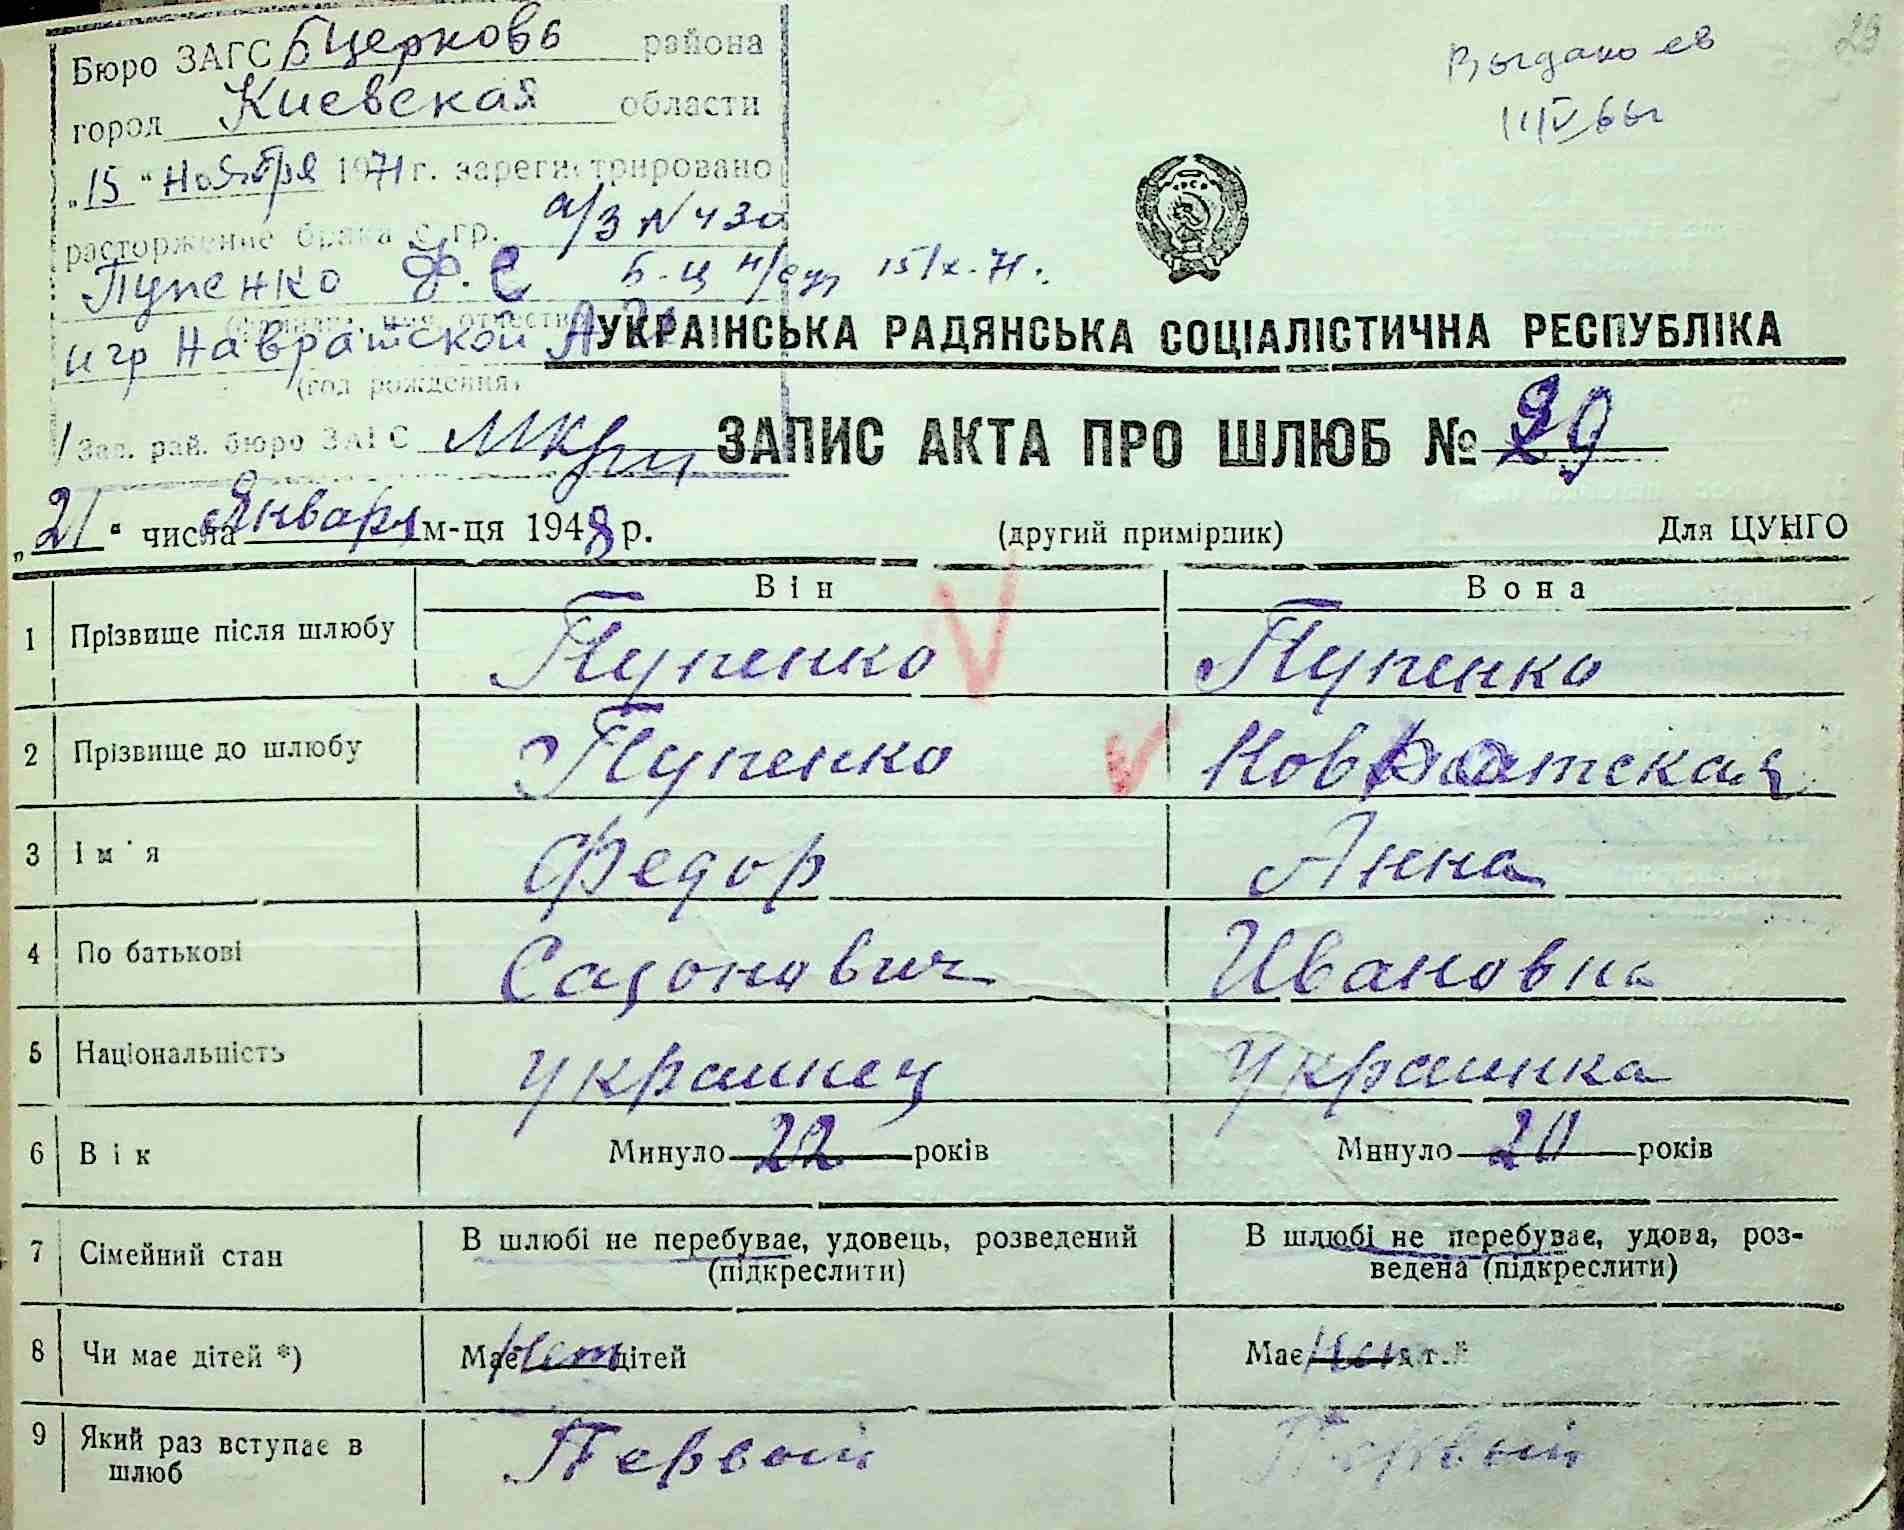 Бюро ЗАГС Б Церковь района
город Киевская области
„15“ Ноября 1971 г. зарегистрировано
расторжение брака с гр. а/з № 430
Пупенко Ф. С Б-Ц н/суд 15/X-71.
и гр Навратской А И
(год рождения)
Зав. рай. бюро ЗАГС
29
11/V 66г
УКРАЇНСЬКА РАДЯНСЬКА СОЦІАЛІСТИЧНА РЕСПУБЛІКА
ЗАПИС АКТА ПРО ШЛЮБ № 29
„21“ числа Января м-ця 1948 р. (другий примірник) Для ЦУНГО
Він Вона
1 Прізвище після шлюбу Пупенко Пупенко
2 Прізвище до шлюбу Пупенко Новратская
3 Ім'я Федор Анна
4 По батькові Сазонович Ивановна
5 Національність украинец украинка
6 Вік Минуло 22 років Минуло 20 років
7 Сімейний стан В шлюбі не перебуває, удовець, розведений (підкреслити) В шлюбі не перебуває, удова, роз-
ведена (підкреслити)
8 Чи має дітей *) Має нет дітей Має нет дітей
9 Який раз вступає в шлюб Первый Первый